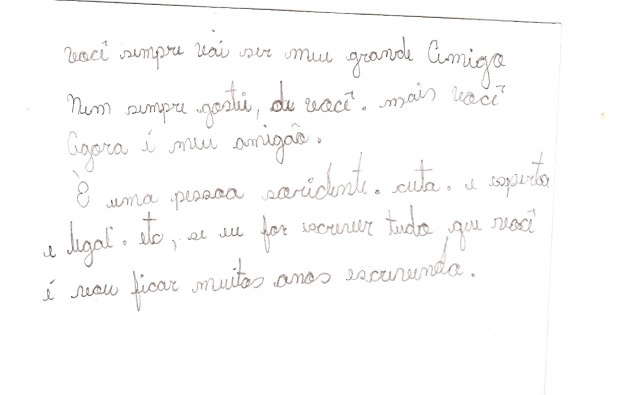 você sempre vai ser meu grande Amigo
Nem sempre gostei, de você. mais você
Agora é meu amigão.
È uma pessoa soridente. cuta. e esperta
e legal. etc, se eu for escrever tudo que você
é vou ficar muitos anos escrevendo.